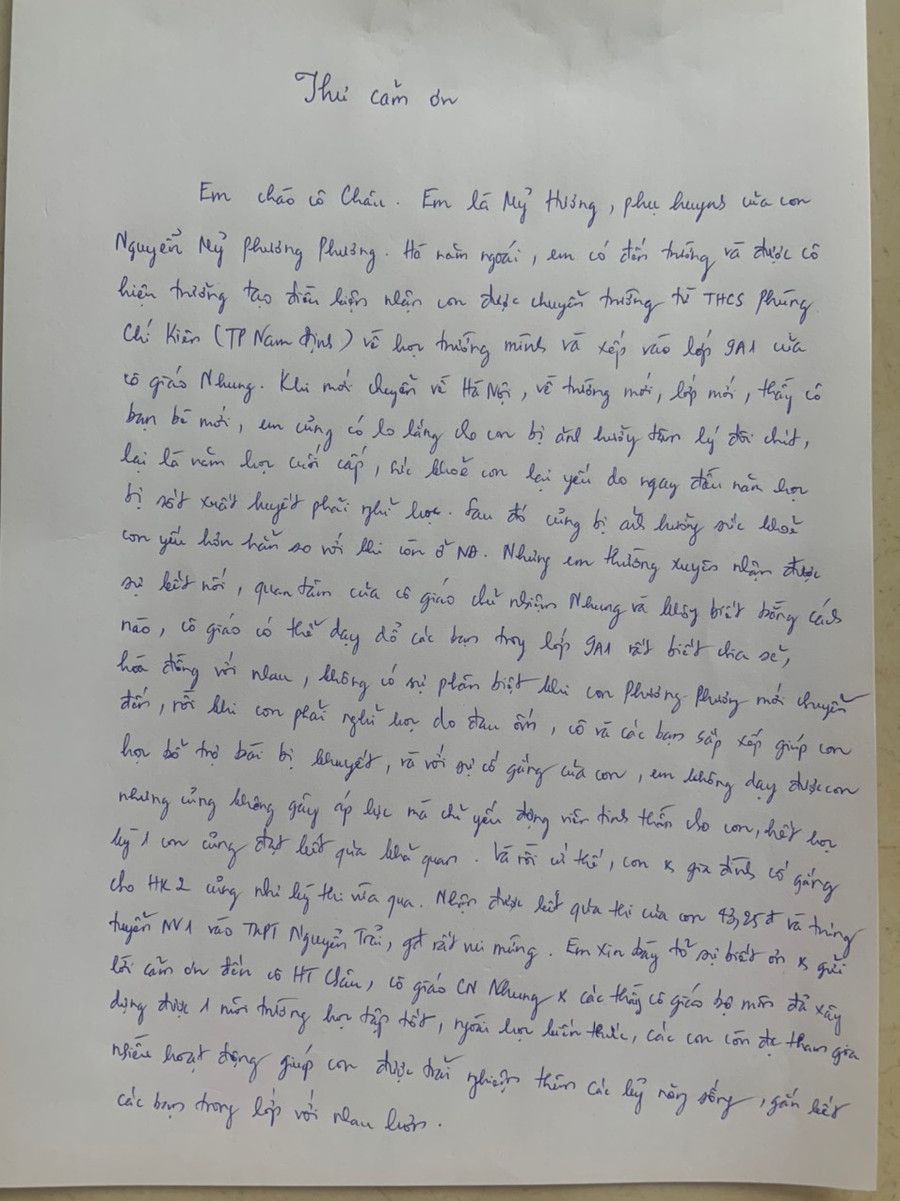 Thư cảm ơn
Em chào cô Châu. Em là Mỹ Hương, phụ huynh của con
Nguyễn Mỹ Phương Phương. Hè năm ngoái, em có đến trường và được cô
hiệu trưởng tạo điều kiện nhận con được chuyển trường từ THCS Phùng
Chí Kiên (TP Nam Định) về học trường mình và xếp vào lớp 9A1 của
cô giáo Nhung. Khi mới chuyển về Hà Nội, về trường mới, lớp mới, thầy cô
bạn bè mới, em cũng có lo lắng cho con bị ảnh hưởng tâm lý đôi chút,
lại là năm học cuối cấp, sức khoẻ con lại yếu do ngay đầu năm học
bị sốt xuất huyết phải nghỉ học. Sau đó cũng bị ảnh hưởng sức khoẻ
con yếu hơn hẳn so với khi còn ở NĐ. Nhưng em thường xuyên nhận được
sự kết nối, quan tâm của cô giáo chủ nhiệm Nhung và không biết bằng cách
nào, cô giáo có thể dạy dỗ các bạn trong lớp 9A1 rất biết chia sẻ,
hoà đồng với nhau, không có sự phân biệt khi con Phương Phương mới chuyển
đến, rồi khi con phải nghỉ học do đau ốm, cô và các bạn sắp xếp giúp con
học bổ trợ bài bị khuyết, và với sự cố gắng của con, em không dạy được con
nhưng cũng không gây áp lực mà chủ yếu động viên tinh thần cho con, hết học
kỳ 1 con cũng đạt kết quả khả quan. Và rồi cứ thế, con & gia đình cố gắng
cho HK2 cũng như kỳ thi vừa qua. Nhận được kết quả thi của con 43,25đ và trúng
tuyển NV1 vào THPT Nguyễn Trãi, gđ rất vui mừng. Em xin bày tỏ sự biết ơn & gửi
lời cảm ơn đến cô HT Châu, cô giáo CN Nhung & các thầy cô giáo bộ môn đã xây
dựng được 1 môi trường học tập tốt, ngoài học kiến thức, các con còn đc tham gia
nhiều hoạt động giúp con được trải nghiệm thêm các kỹ năng sống, gắn kết
các bạn trong lớp với nhau hơn.